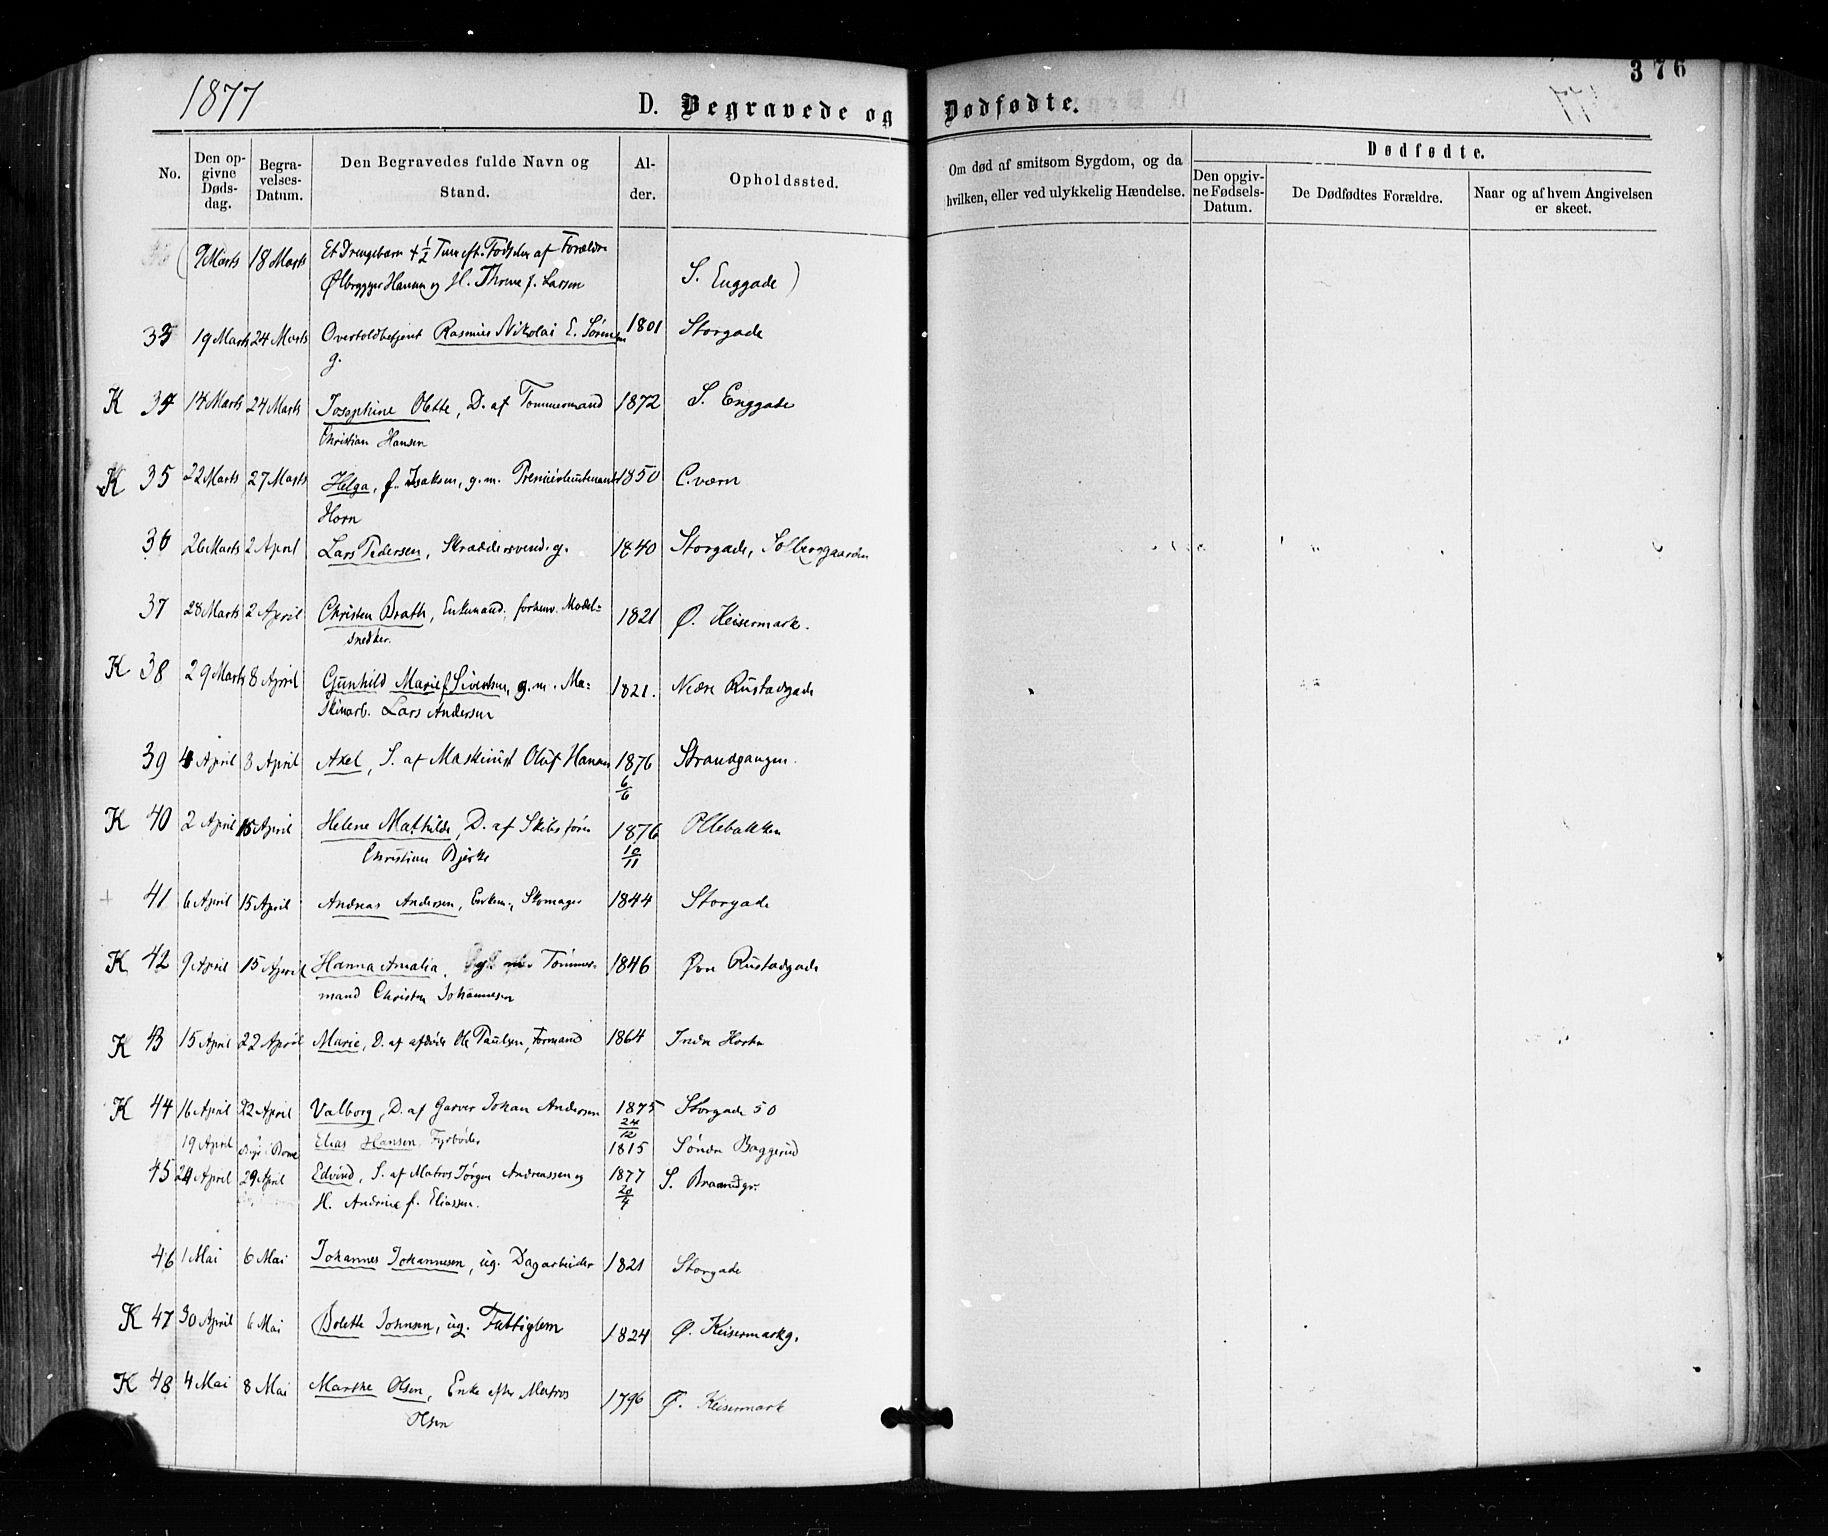 376
1877
D. Begravede og Dødfødte.
No.
Den opgivne Dødsdag.
Begravelses-Datum.
Den Begravedes fulde Navn og Stand.
Alder.
Opholdssted.
Om død af smitsom Sygdom, og da hvilken, eller ved ulykkelig Hændelse.
Dødfødte.
Den opgivne Fødsels-Datum.
De Dødfødtes Forældre.
Naar og af hvem Angivelsen er skeet.
( 9 Marts 18 Marts Et Drengebarn 4 1/2 Time eft. Fødselen af Forældre
Ølbrygger Hansen og H. Thrine f. Larsen S. Enggade )
33 19 Marts 24 Marts Overtoldbetjent Rasmus Nikolai E. Sørensen 1801 Storgade
g.
K 34 14 Marts 24 Marts Josephine Olette, D. af Tømmermand 1872 S. Enggade
Christian Hansen
K 35 22 Marts 27 Marts Helga, f. Isaksen, g. m. Premierleutenant 1850 C. værn
Horn
36 26 Marts 2 April Lars Pedersen, Skræddersvend g. 1840 Storgade, Solberggaarden
37 28 Marts 2 April Christen Brath, Enkemand, forhenv. Model- 1821 Ø. Keisermark.
snedker.
K 38 29 Marts 8 April Gunhild Marie f. Sivertsen, g. m. Ma- 1821. Nedre Rustadgade
skinarb. Lars Andersen
39 4 April 8 April Axel, S. af Maskinist Oluf Hansen 1876 6/6 Strandgangen.
K 40 2 April 15 April Helene Mathilde, D. af Skibsfører 1876 10/11 Ollebakken
Christian Bjerke
+ 41 6 April 15 April Andreas Andersen, Enkem., Skomager 1844 Storgade
K 42 9 April 15 April Hanna Amalia, Tømmer- 1846 Øvre Rustadgade
mand Christen Johannesen
K 43 15 April 22 April Marie, D. af afdøde Ole Paulsen, Formand 1864 Indre Horten
K 44 16 April 22 April Valborg, D. af Garver Johan Andersen 1875 24/12 Storgade 50
19 April Elias Hansen, Fyrbøder 1815 Søndre Baggerud
45 24 April 29 April Edvind, S. af Matros Jørgen Andreassen og 1877 20/4 S. Braarudgr.
H. Andrine f. Eliassen.
46 1 Mai 6 Mai Johannes Johannesen, ug. Dagarbeider 1821 Storgade
K 47 30 April 6 Mai Bolette Johnsen, ug. Fattiglem 1824 Ø. Keisermarkg.
K 48 4 Mai 8 Mai Marthe Olsen, Enke efter Matros 1796 Ø. Keisermark
Olsen